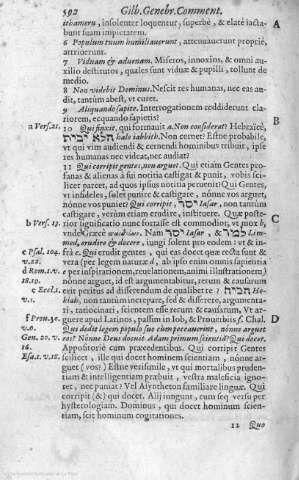 592 Gilb. Genebr. Comment.
thameru, insolenter loquentur, superbè, & elatè iacta-
bunt suam impietatem.
6 Populum tuum humiliauerunt, attenuauerunt propriè,
attriuerunt.
7 Viduam & aduenam. Miseros, innoxios, & omni au-
xilio destitutos, quales sunt viduæ & pupilli, tollunt de
medio.
8 Non videbit Dominus. Nescit res humanas, nec eas au-
dit, tantùm abest, vt curet.
9 Aliquando sapite. Interrogationem reddiderunt cla-
riorem, ecquando sapietis?
n Vers. 21.
10 Qui finxit, qui formauit a. Non considerat? Hebraicè,
הלא יביט halo iabbith. Non cernet? Estne probabile,
vt qui vim audiendi & cernendi hominibus tribuit, ipse
res humanas nec videat, nec audiat?
11 Qui corripit gentes, non arguet. Qui etiam Gentes pro-
fanas & alienas à sui notitia castigat & punit, vobis sci-
licet parcet, ad quos ipsius notitia peruenit? Qui Gentes,
vt infideles, solet punire & castigare, nónne vos arguet,
nónne vos puniet? Qui corripit, יסר Iasar, non tantùm
castigare, verùm etiam erudire, instituere. Quæ poste-
b Vers. 13.
rior significatio nunc fortasse est commodior, vt mox b,
vnde Græcè Nam יסר Iasar, & למד Lim-
med, erudire & docere, iungi solent pro eodem: vt & in-
c Psal. 104.
v.22.
frà c. Qui erudit gentes, qui eas docet quæ recta sunt &
vera (per legem naturæ d, ab ipso enim omnis sapientia
d Rom. 1. v.
18.19.
e per inspirationem, reuelationem, animi illustrationem)
nónne arguet, id est argumentabitur, rerum & causarum
e Eccl. 1.
v.1.
erit peritus ad differendum de qualibet re? הוכיח He-
kiah, non tantùm increpare, sed & differere, argumenta-
ri, ratiocinari, scientem esse rerum & causarum, Vt ar-
guere apud Latinos, passim in Iob, & Prouerbiis f. Chal.
f Prou. 30.
v.6.
Qui dedit legem populo suo cùm peccauerint, nónne arguet
Gen. 20. v.
16.
eos? Nónne Deus docuit Adam primum scientiã? Qui docet.
Appositio cum præcedentibus. Qui corripit Gentes
Esa. 1. v.18.
scilicet, ille qui docet hominem scientiam, nónne ar-
guet (vos) Estne verisimile, vt qui mortalibus pruden-
tiam & intelligentiam præbuit, vestra maleficia igno-
ret, nec puniat? Vel Asyntheton familiare linguæ. Qui
corripit (&) qui docet. Alij iungunt, cum seq. versu per
hysterologiam. Dominus, qui docet hominem scien-
tiam, scit hominum cogitationes.
12 Quo
A
B
C
D